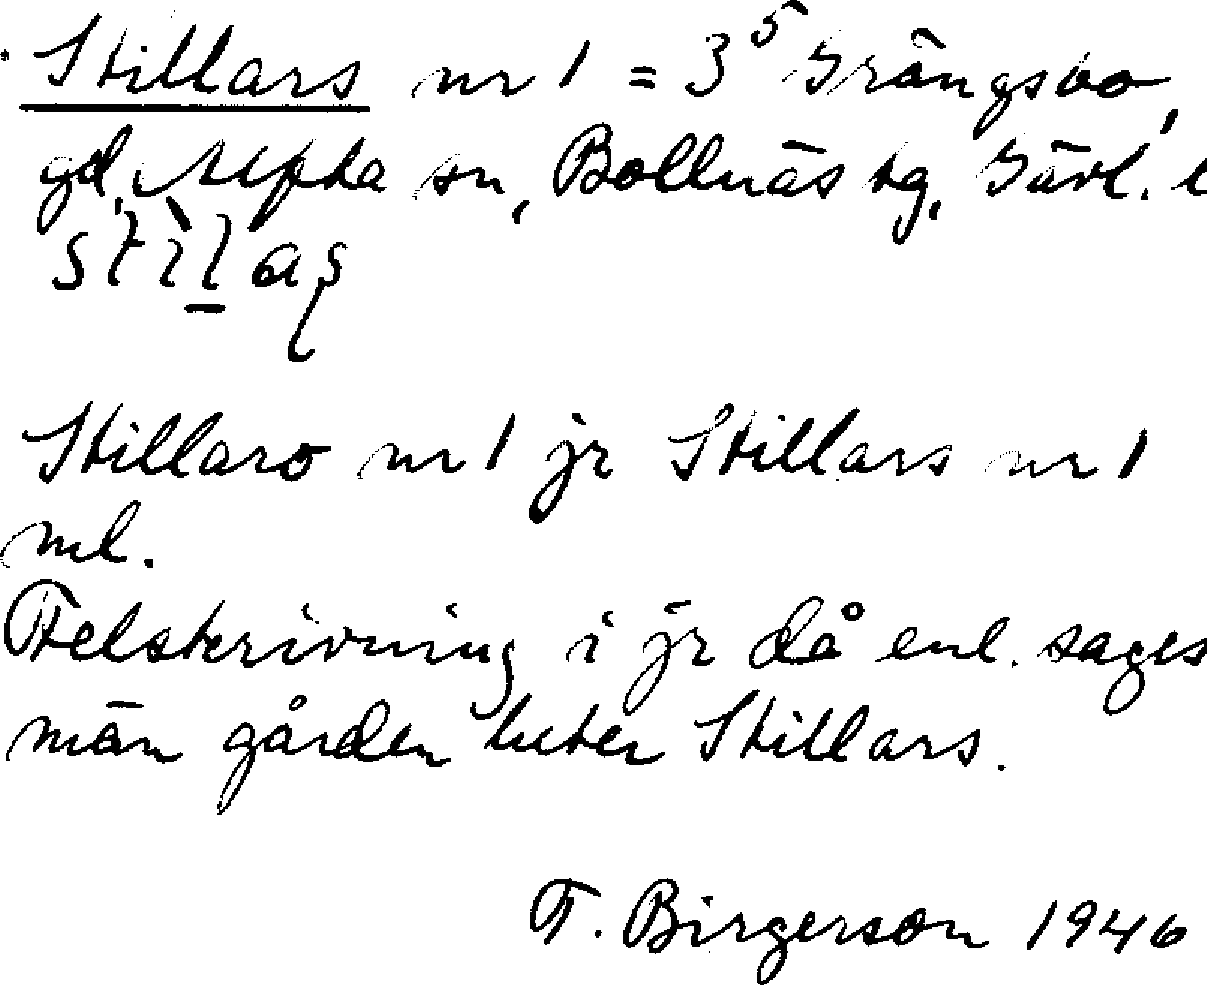 Stillars nr 1 = 3⁵ Grängsbo,
gd, Alfta sn, Bollnäs tg, Gävl. l
Stillaro nr 1 jr Stillars nr 1
ml.
Felskrivning i jr då enl. sages
män gården heter Stillars.
F. Birgerson 1946